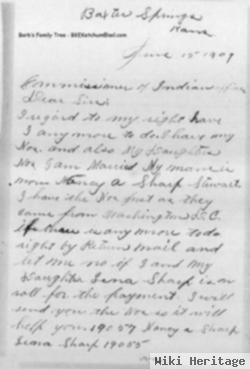 Baxter Springs
Kans
Barb's Family Tree - BKEKetchum@aol.com
June 15 1909
Commissioner of Indian affairs
Dear Sir
I regard to my right have
I any more to do have any
No. and also My Daughter
No I am Married My name is
now Nancy A Sharp Stewart
I have the Nos just as they
came from Washington D.C.
If there is any more to do
right by Return Mail and
let me no if I and My
Daughter Lena Sharp is on
roll for the payment I will
send you the Nos is it will
help you 19057 Nancy A Sharp
Lena Sharp 19055
Wiki Heritage